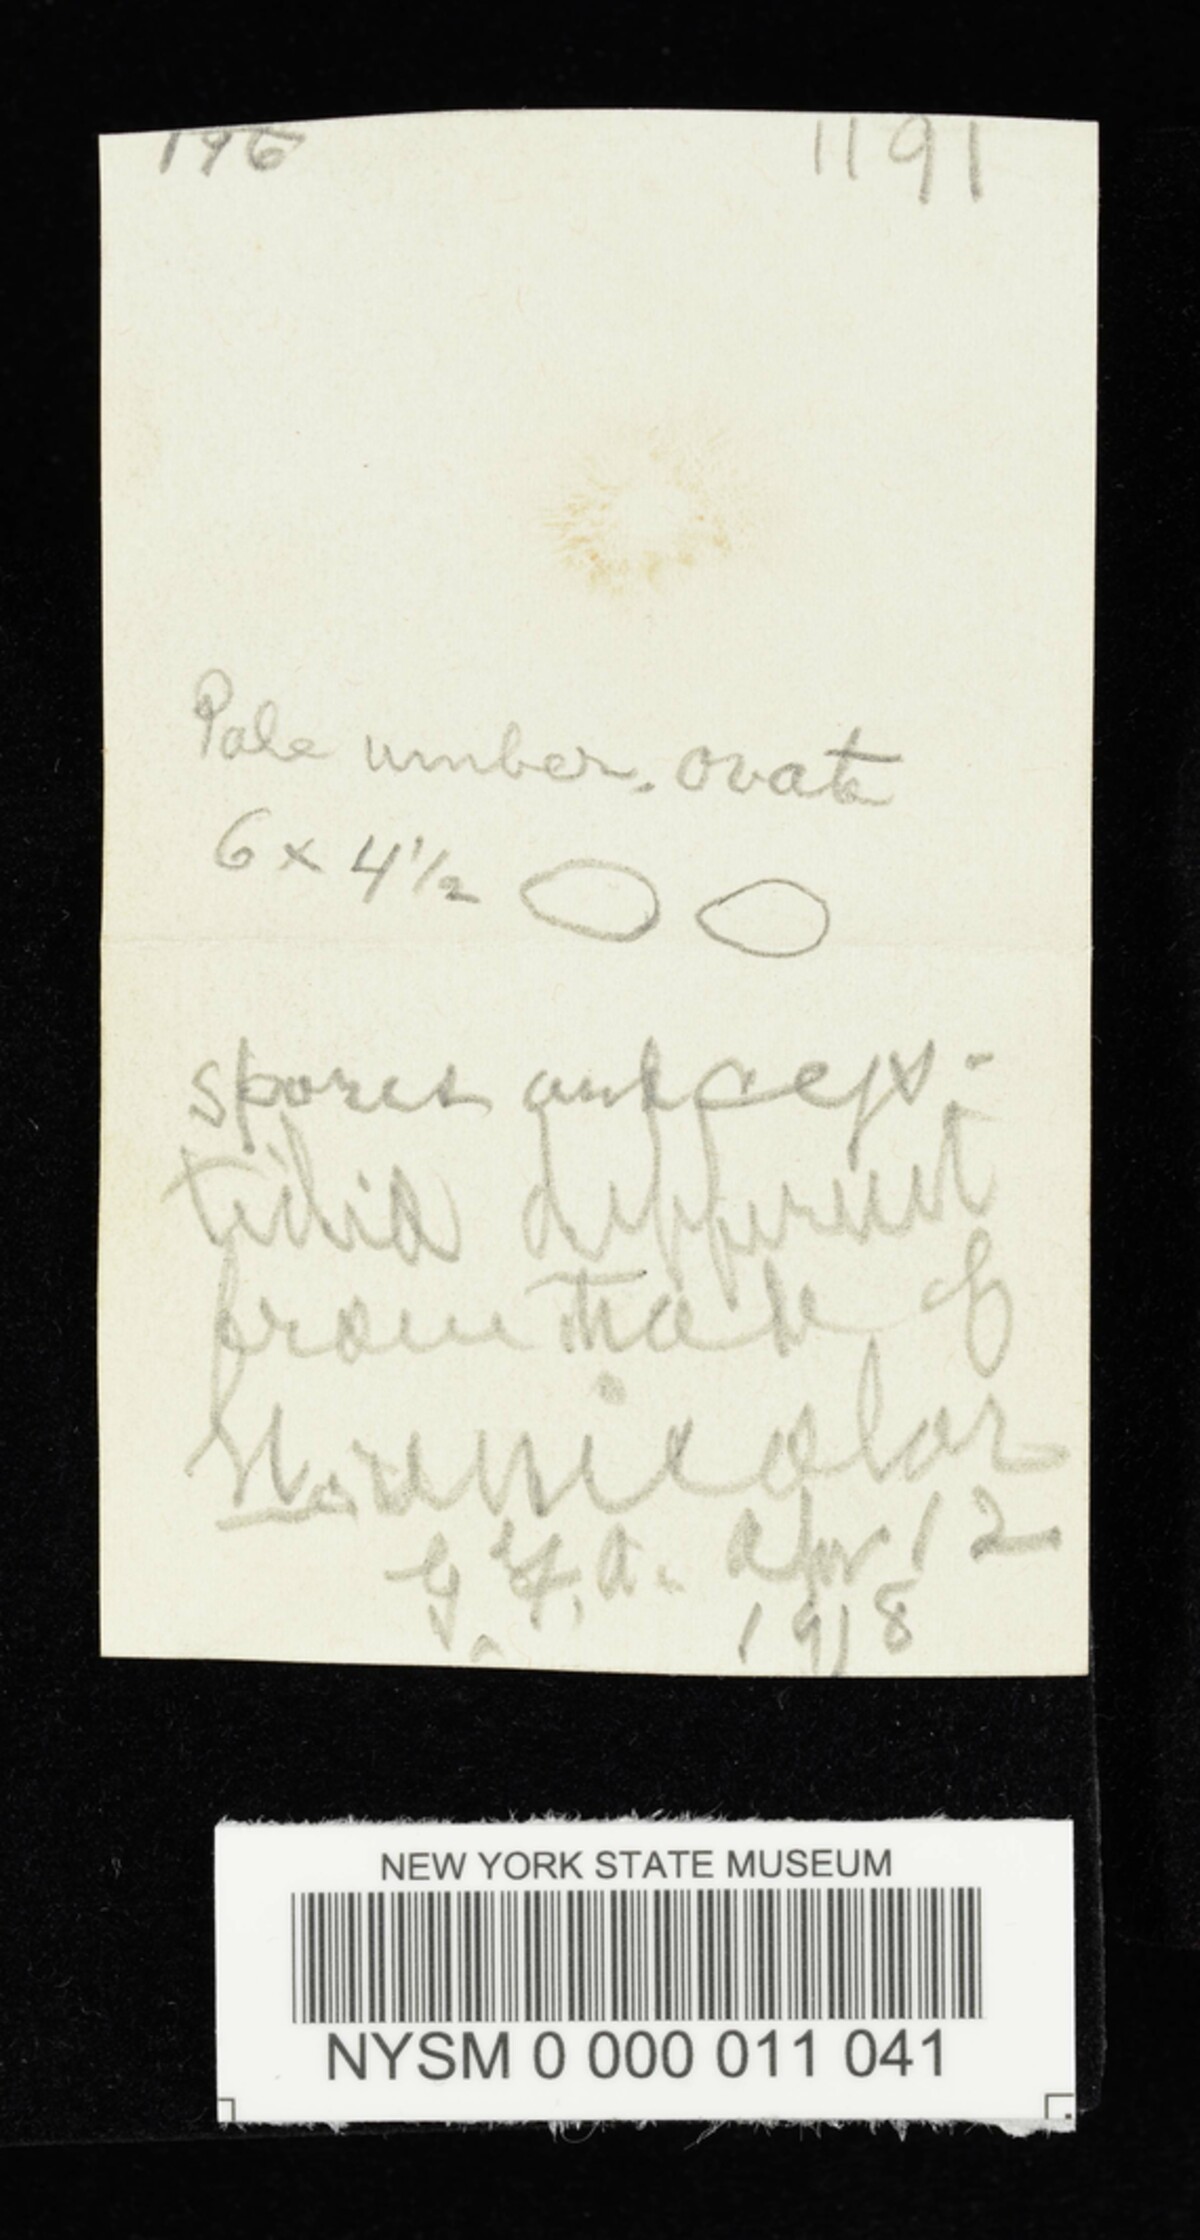 196 1191
Pale umber. ovate
6 x 4 1/2
spores and cys-
tidia different
from that of
versicolor
G. F. A. Apr 12
1918
NEW YORK STATE MUSEUM
NYSM 0 000 011 041